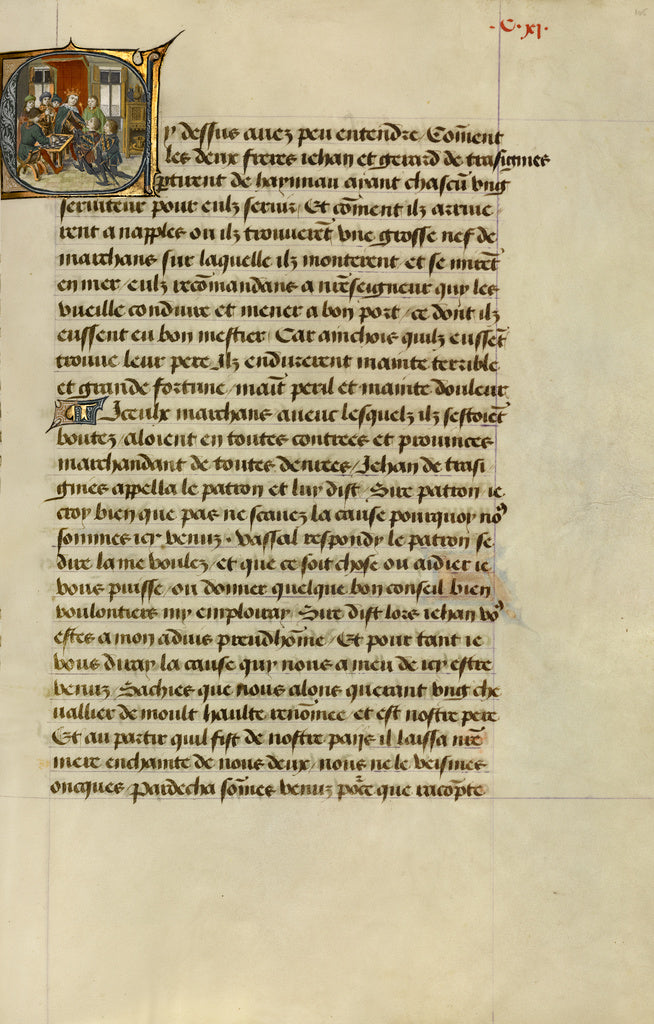 ·C·xj·
Cy dessus auez peu entendre / Com̃ent
les deux freres iehan et gerard de trasignies
ptirent de haynnau ayant chascũ vng
seruiteur pour eulz seruir / Et cõment ilz arriue
rent a napples ou ilz trouuerẽt vne grosse nef de
marchans sur laquelle ilz monterent et se mirẽt
en mer / eulz recõmandans a nr̃eseigneur quy les
vueille conduire et mener a bon port / ce dont ilz
eussent eu bon mestier / Car ainchois quilz eussẽt
trouue leur pere Ilz endurerent mainte terrible
et grande fortune / maĩt peril et mainte douleur
Iceulx marchans aueuc lesquelz ilz sestoiẽt
boutez / aloient en toutes contrees et prouinces
marchandant de toutes denrees / Jehan de trasi
gnies appella le patron et luy dist / Sire patron ie
croy bien que pas ne scauez la cause pourquoy noꝰ
sommes icy venuz · vassal respondy le patron se
dire la me voulez / et que ce soit chose ou aidier ie
vous puisse / ou donner quelque bon conseil bien
voulontiers my emploiray Sire dist lors iehan voꝰ
estes a mon aduis preudhõme / Et pour tant ie
vous diray la cause quy nous a meu de icy estre
venuz Sachies que nous alons querant vng che
uallier de moult haulte renõmee et est nostre pere
Et au partir quil fist de nostre pays il laissa nr̃e
mere enchainte de nous deux / nous ne le veismes
oncques Pardecha sõmes venuz que racõpte